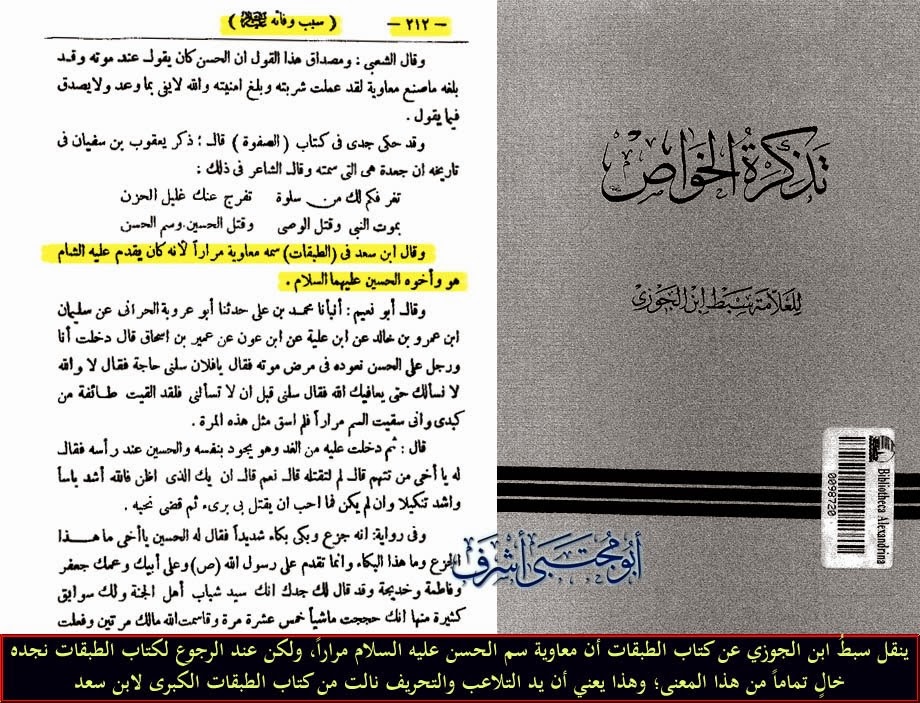 — ٢١٢ — ( سبب وفاته عليه السلام )
وقال الشعبي : ومصداق هذا القول ان الحسن كان يقول عند موته وقد
بلغه ماصنع معاوية لقد عملت شربته وبلغ امنيته والله لايفي بما وعد ولايصدق
فيما يقول .
وقد حكى جدى فى كتاب ( الصفوة ) قال : ذكر يعقوب بن سفيان فى
تاريخه ان جعدة هى التى سمته وقال الشاعر فى ذلك :
تفر فكم لك من سلوة تفرج عنك غليل الحزن
بموت النبي وقتل الوصى وقتل الحسين وسم الحسن
وقال ابن سعد فى ( الطبقات ) سمه معاوية مراراً لأنه كان يقدم عليه الشام
هو وأخوه الحسين عليهما السلام .
وقال أبو نعيم : أنبأنا محمد بن على حدثنا أبو عروبة الحرانى عن سليمان
ابن عمرو بن خالد عن ابن علية عن ابن عون عن عمير بن اسحاق قال دخلت أنا
ورجل على الحسن نعوده فى مرض موته فقال يافلان سلنى حاجة فقال لا والله
لا نسألك حتى يعافيك الله فقال سلنى قبل ان لا تسألنى فلقد القيت طائفة من
كبدى وانى سقيت السم مراراً فلم اسق مثل هذه المرة .
قال : ثم دخلت عليه من الغد وهو يجود بنفسه والحسين عند رأسه فقال
له يا أخى من تتهم قال لم لتقتله قال نعم قال ان يك الذى اظن فالله أشد باساً
واشد تنكيلا وان لم يكن فما احب ان يقتل بى برىء ثم قضى نحبه .
وفى رواية : انه جزع وبكى بكاء شديداً فقال له الحسين ياأخى ما هذا
الجزع وما هذا البكاء وانما تقدم على رسول الله (ص) وعلى أبيك وعمك جعفر
وفاطمة وخديجة وقد قال لك جدك انك سيد شباب أهل الجنة ولك سوابق
كثيرة منها انك حججت ماشياً خمس عشرة مرة وقاسمت الله مالك مرتين وفعلت
تذكرة الخواص
للعلامة سبط ابن الجوزي
Bibliotheca Alexandrina
0098720
أبو مجتبى أشرف
ينقل سبطُ ابن الجوزي عن كتاب الطبقات أن معاوية سم الحسن عليه السلام مراراً، ولكن عند الرجوع لكتاب الطبقات نجده
خالٍ تماماً من هذا المعنى؛ وهذا يعني أن يد التلاعب والتحريف نالت من كتاب الطبقات الكبرى لابن سعد